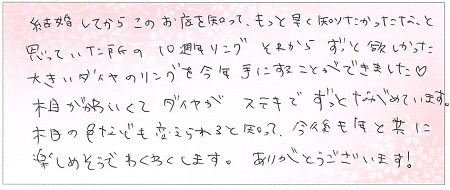 結婚してからこのお店を知って、もっと早く知りたかったな、と
思っていた所の10周年リング それから ずっと欲しかった
大きいダイヤのリングを今年手にすることができました♡
木目がかわいくて ダイヤが ステキで ずっとながめています。
木目の色なども変えられると知って、今後も年と共に
楽しめそうでわくわくします。 ありがとうございます!